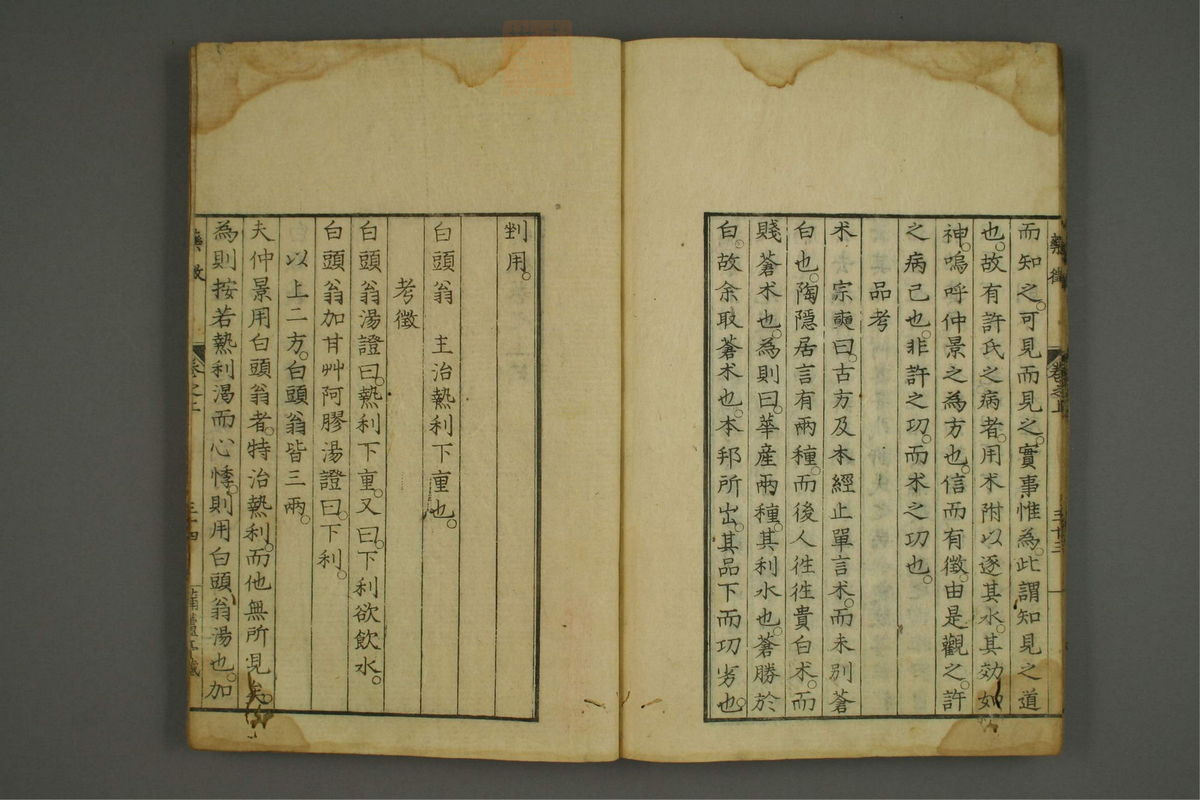 藥徵
卷之上
三十三
而知之。可見而見之。實事惟為。此謂知見之道
也。故有許氏之病者。用朮附以逐其水。其効如
神。嗚呼仲景之為方也。信而有徵。由是觀之。許
之病已也。非許之功。而朮之功也。
品考
朮 宗奭曰。古方及本經止單言朮。而未別蒼
白也。陶隱居言有兩種。而後人徃徃貴白朮。而
賤蒼朮也。為則曰。華産兩種。其利水也。蒼勝於
白。故余取蒼朮也。本邦所出。其品下而功劣也。
剉用。
白頭翁 主治熱利下重也。
考徵
白頭翁湯證曰。熱利下重。又曰。下利欲飲水。
白頭翁加甘艸阿膠湯證曰。下利。
以上二方。白頭翁皆三兩。
夫仲景用白頭翁者。特治熱利。而他無所見矣。
為則按若熱利渴而心悸。則用白頭翁湯也。加
藥徵
卷之上
三十四